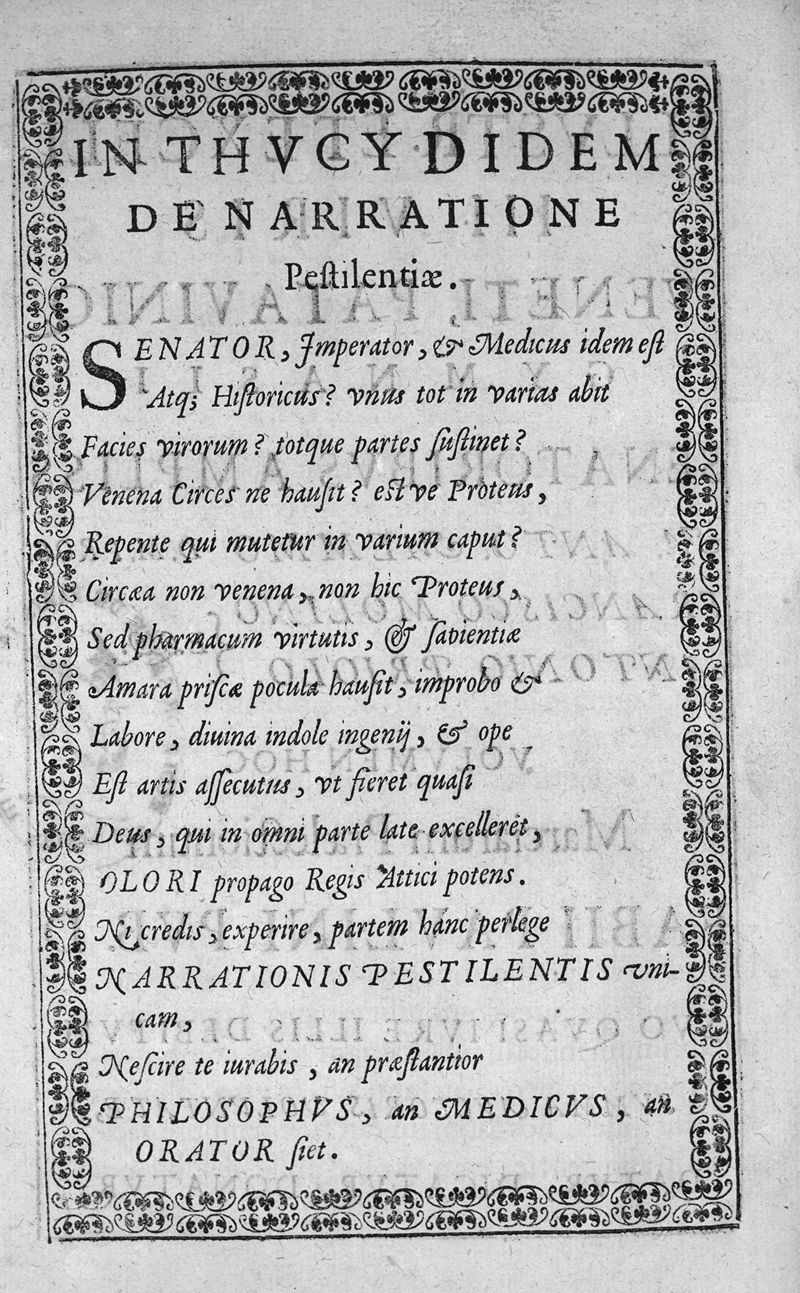 IN THVCYDIDEM
DE NARRATIONE
Pestilentiæ.
SENATOR, Imperator, & Medicus idem est
Atq; Historicus? vnus tot in varias abit
Facies virorum? totque partes sustinet?
Venena Circes ne hausit? est ve Proteus,
Repente qui mutetur in varium caput?
Circæa non venena, non hic Proteus,
Sed pharmacum virtutis, & sapientiæ
Amara priscæ pocula hausit, improbo &
Labore, diuina indole ingenij, & ope
Est artis assecutus, vt fieret quasi
Deus, qui in omni parte late excelleret,
OLORI propago Regis Attici potens.
Ni credis, experire, partem hanc perlege
NARRATIONIS PESTILENTIS vni-
cam,
Nescire te iurabis, an præstantior
PHILOSOPHVS, an MEDICVS, an
ORATOR siet.